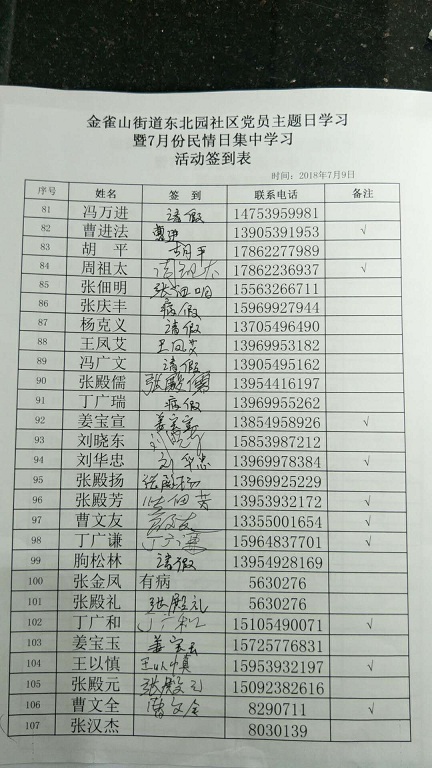 金雀山街道东北园社区党员主题日学习
暨7月份民情日集中学习
活动签到表
时间：2018年7月9日
序号 姓名 签 到 联系电话 备注
81 冯万进 请假 14753959981
82 曹进法 曹进 13905391953 √
83 胡 平 胡平 17862277989
84 周祖太 周祖太 17862236937 √
85 张佃明 张佃明 15563266711
86 张庆丰 病假 15969927944
87 杨克义 请假 13705496490
88 王凤艾 王凤艾 13969953182
89 冯广文 请假 13905495162
90 张殿儒 张殿儒 13954416197
91 丁广瑞 病假 13969955262
92 姜宝宣 姜宝宣 13854958926 √
93 刘晓东 刘晓东 15853987212
94 刘华忠 刘华忠 13969978384 √
95 张殿扬 张殿扬 13969925229
96 张殿芳 张佃芳 13953932172 √
97 曹文友 曹文友 13355001654 √
98 丁广谦 丁广谦 15964837701 √
99 朐松林 请假 13954928169
100 张金凤 有病 5630276
101 张殿礼 张殿礼 5630276
102 丁广和 丁广和 15105490071 √
103 姜宝玉 姜宝玉 15725776831
104 王以慎 王以慎 15953932197 √
105 张殿元 张殿元 15092382616
106 曹文全 曹文全 8290711 √
107 张汉杰 8030139